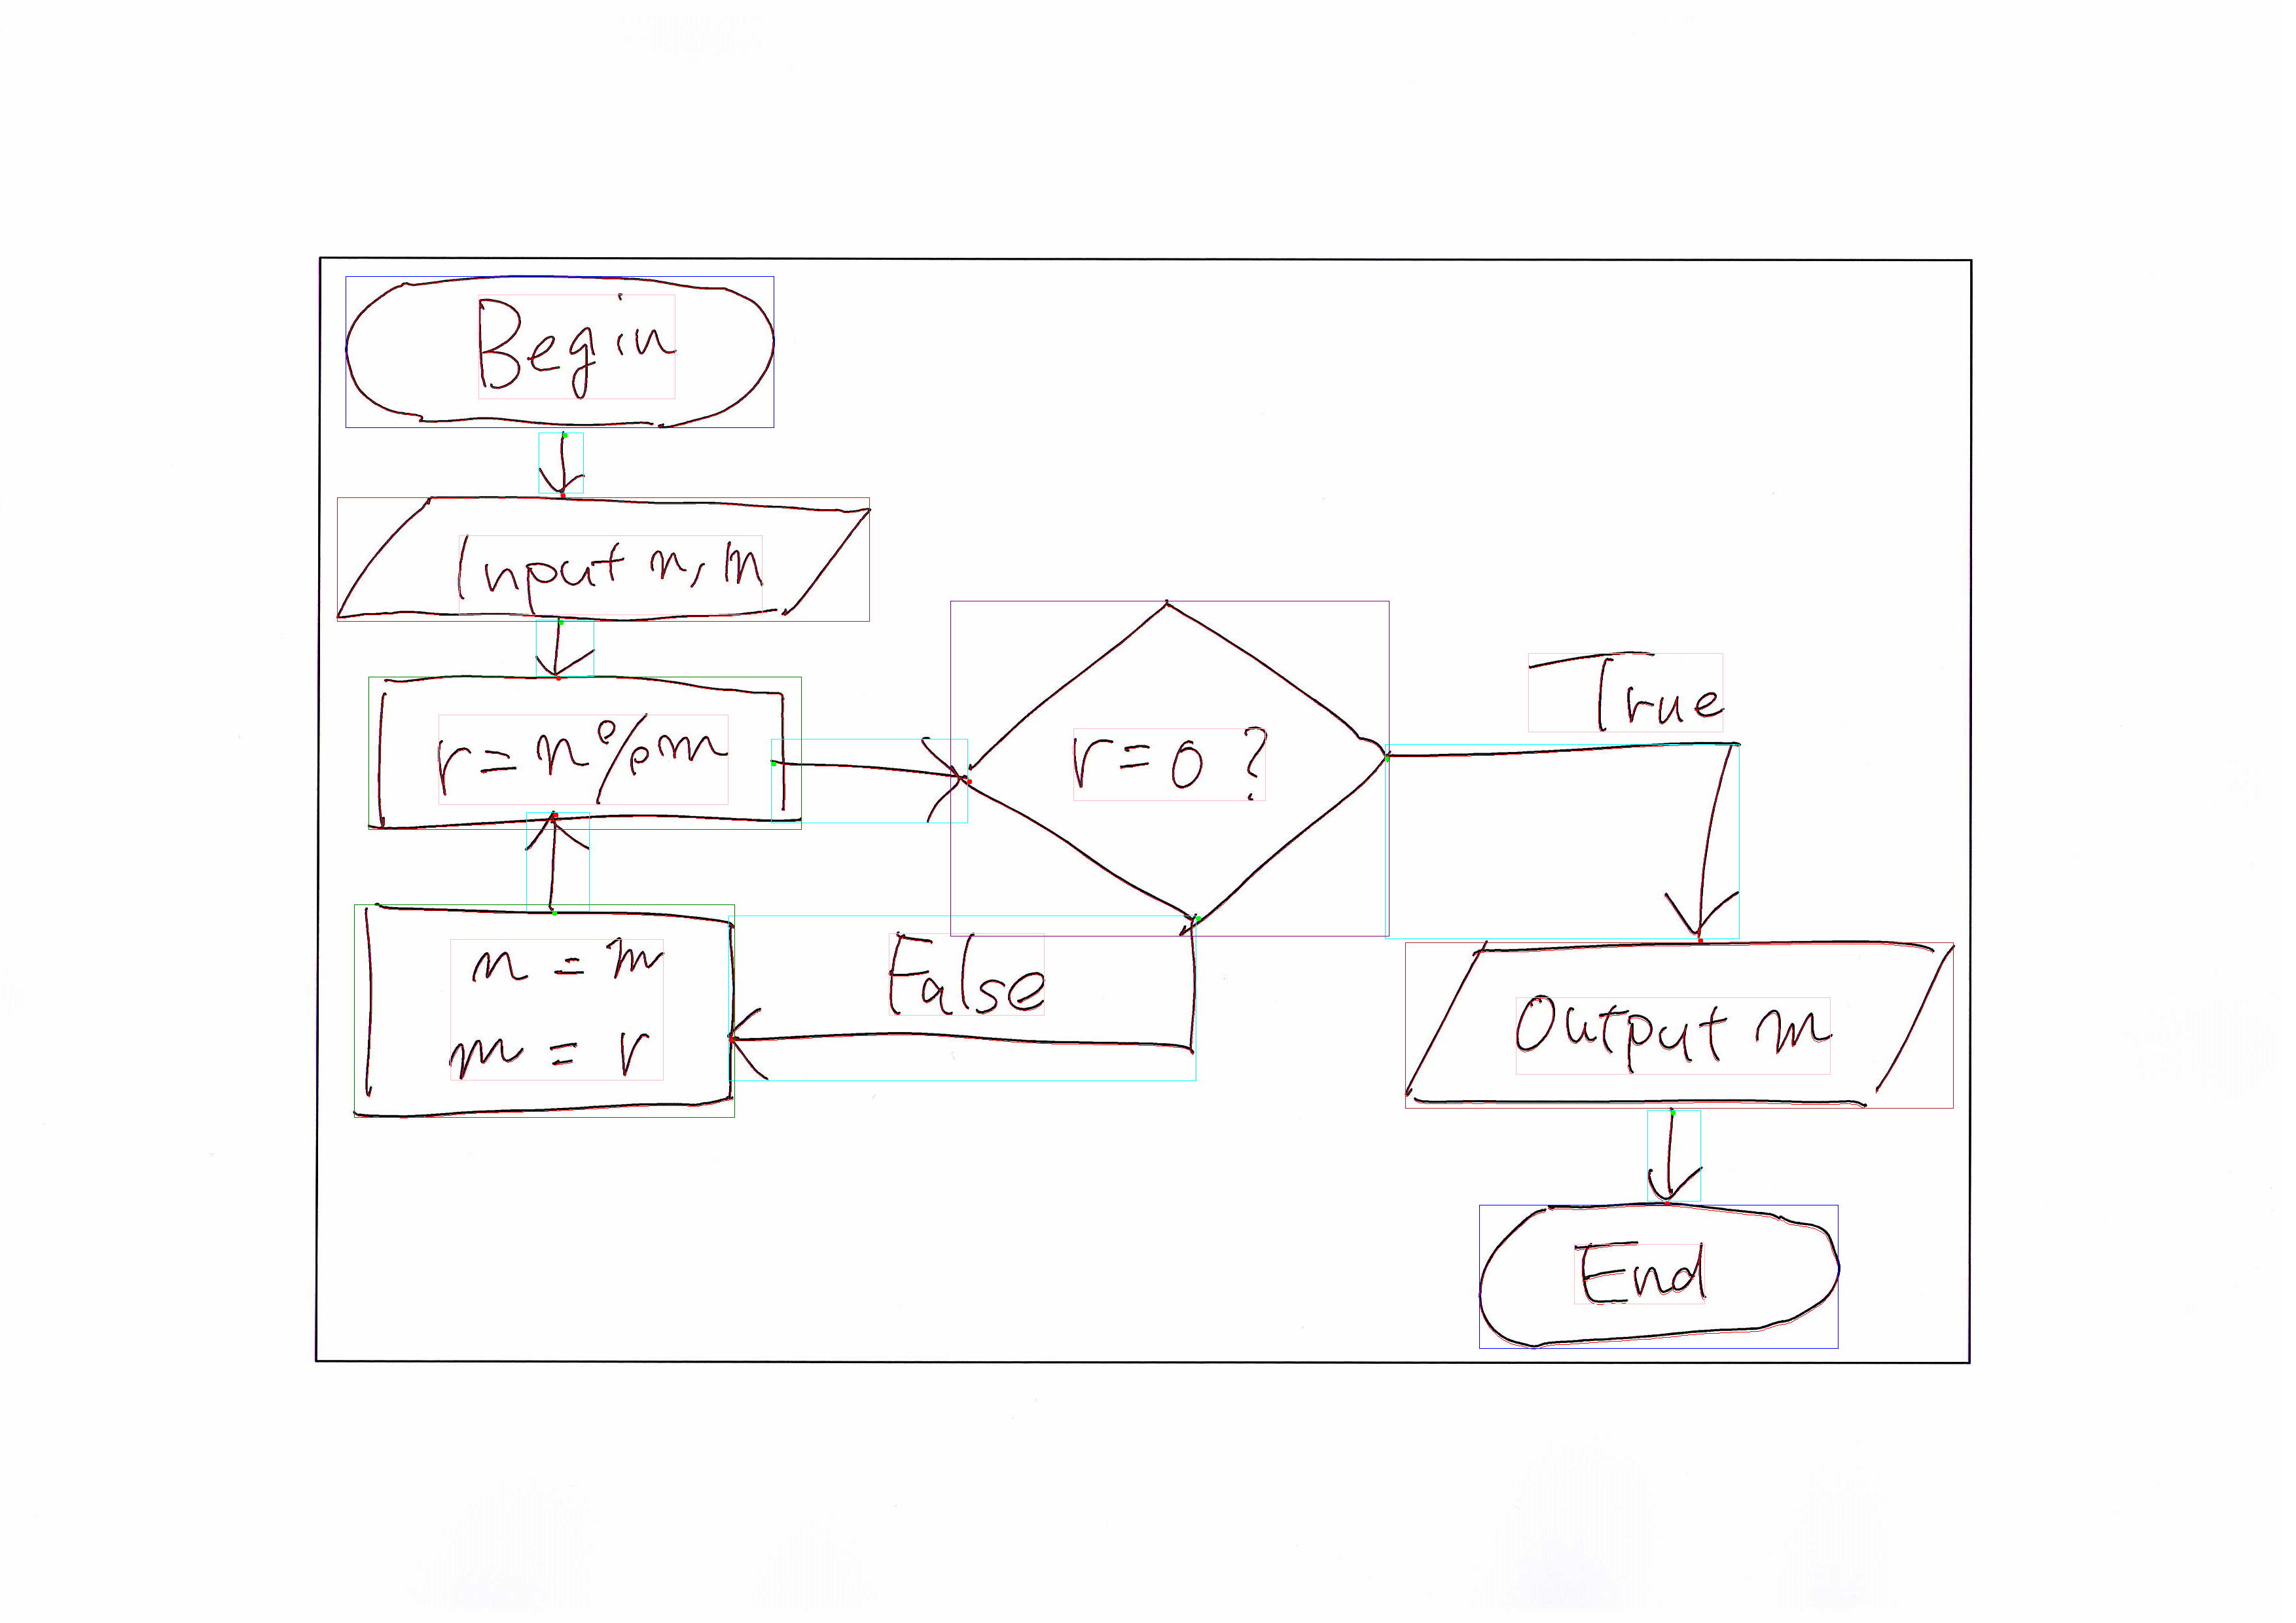 Begin
Input n, m
r = n % m
r = 0 ?
True
False
n = m
m = r
Output m
End